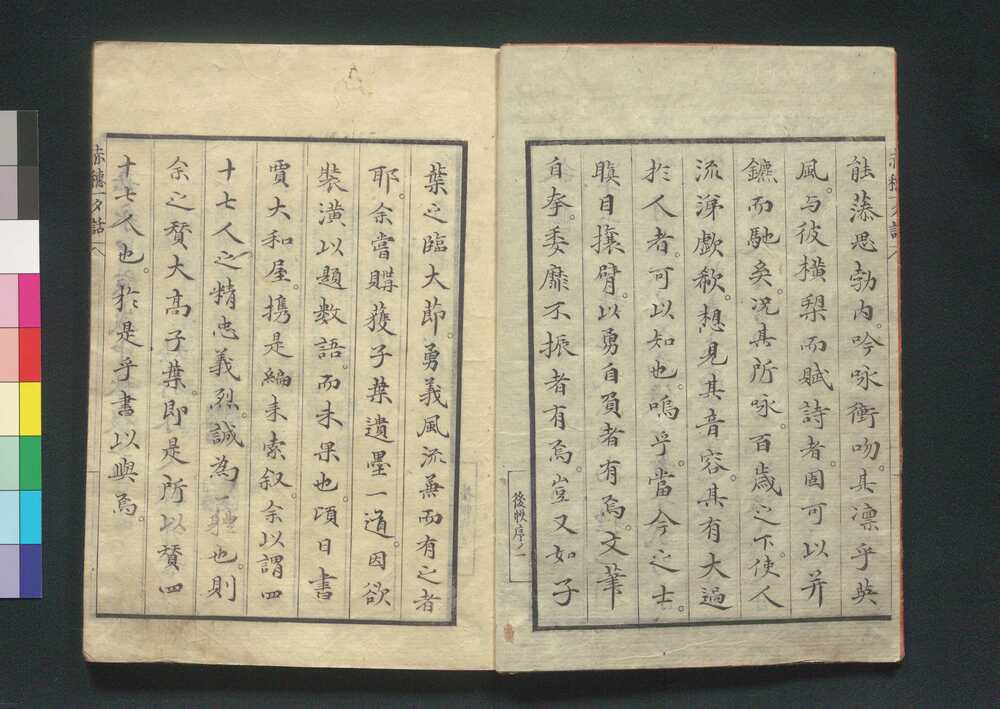 能蕩思勃内。吟咏衝吻。其凛乎英
風。与彼横槊而賦詩者。固可以并
鑣而馳矣。况其所咏。百歳之下。使人
流涕歔欷。想見其音容。其有大過
於人者。可以知也。嗚乎。當今之士。
瞋目攘臂。以勇自負者有焉。文筆
自奉。委靡不振者有焉。豈又如子
後帙序ノ一
葉之臨大節。勇義風流兼而有之者
耶。余嘗購獲子葉遺墨一通。因欲
装潢以題數語。而未果也。頃日書
賈大和屋。携是編来索叙。余以謂四
十七人之精忠義烈。誠為一軆也。則
余之賛大高子葉。即是所以賛四
十七人也。於是乎書以與焉。
赤穂一夕話